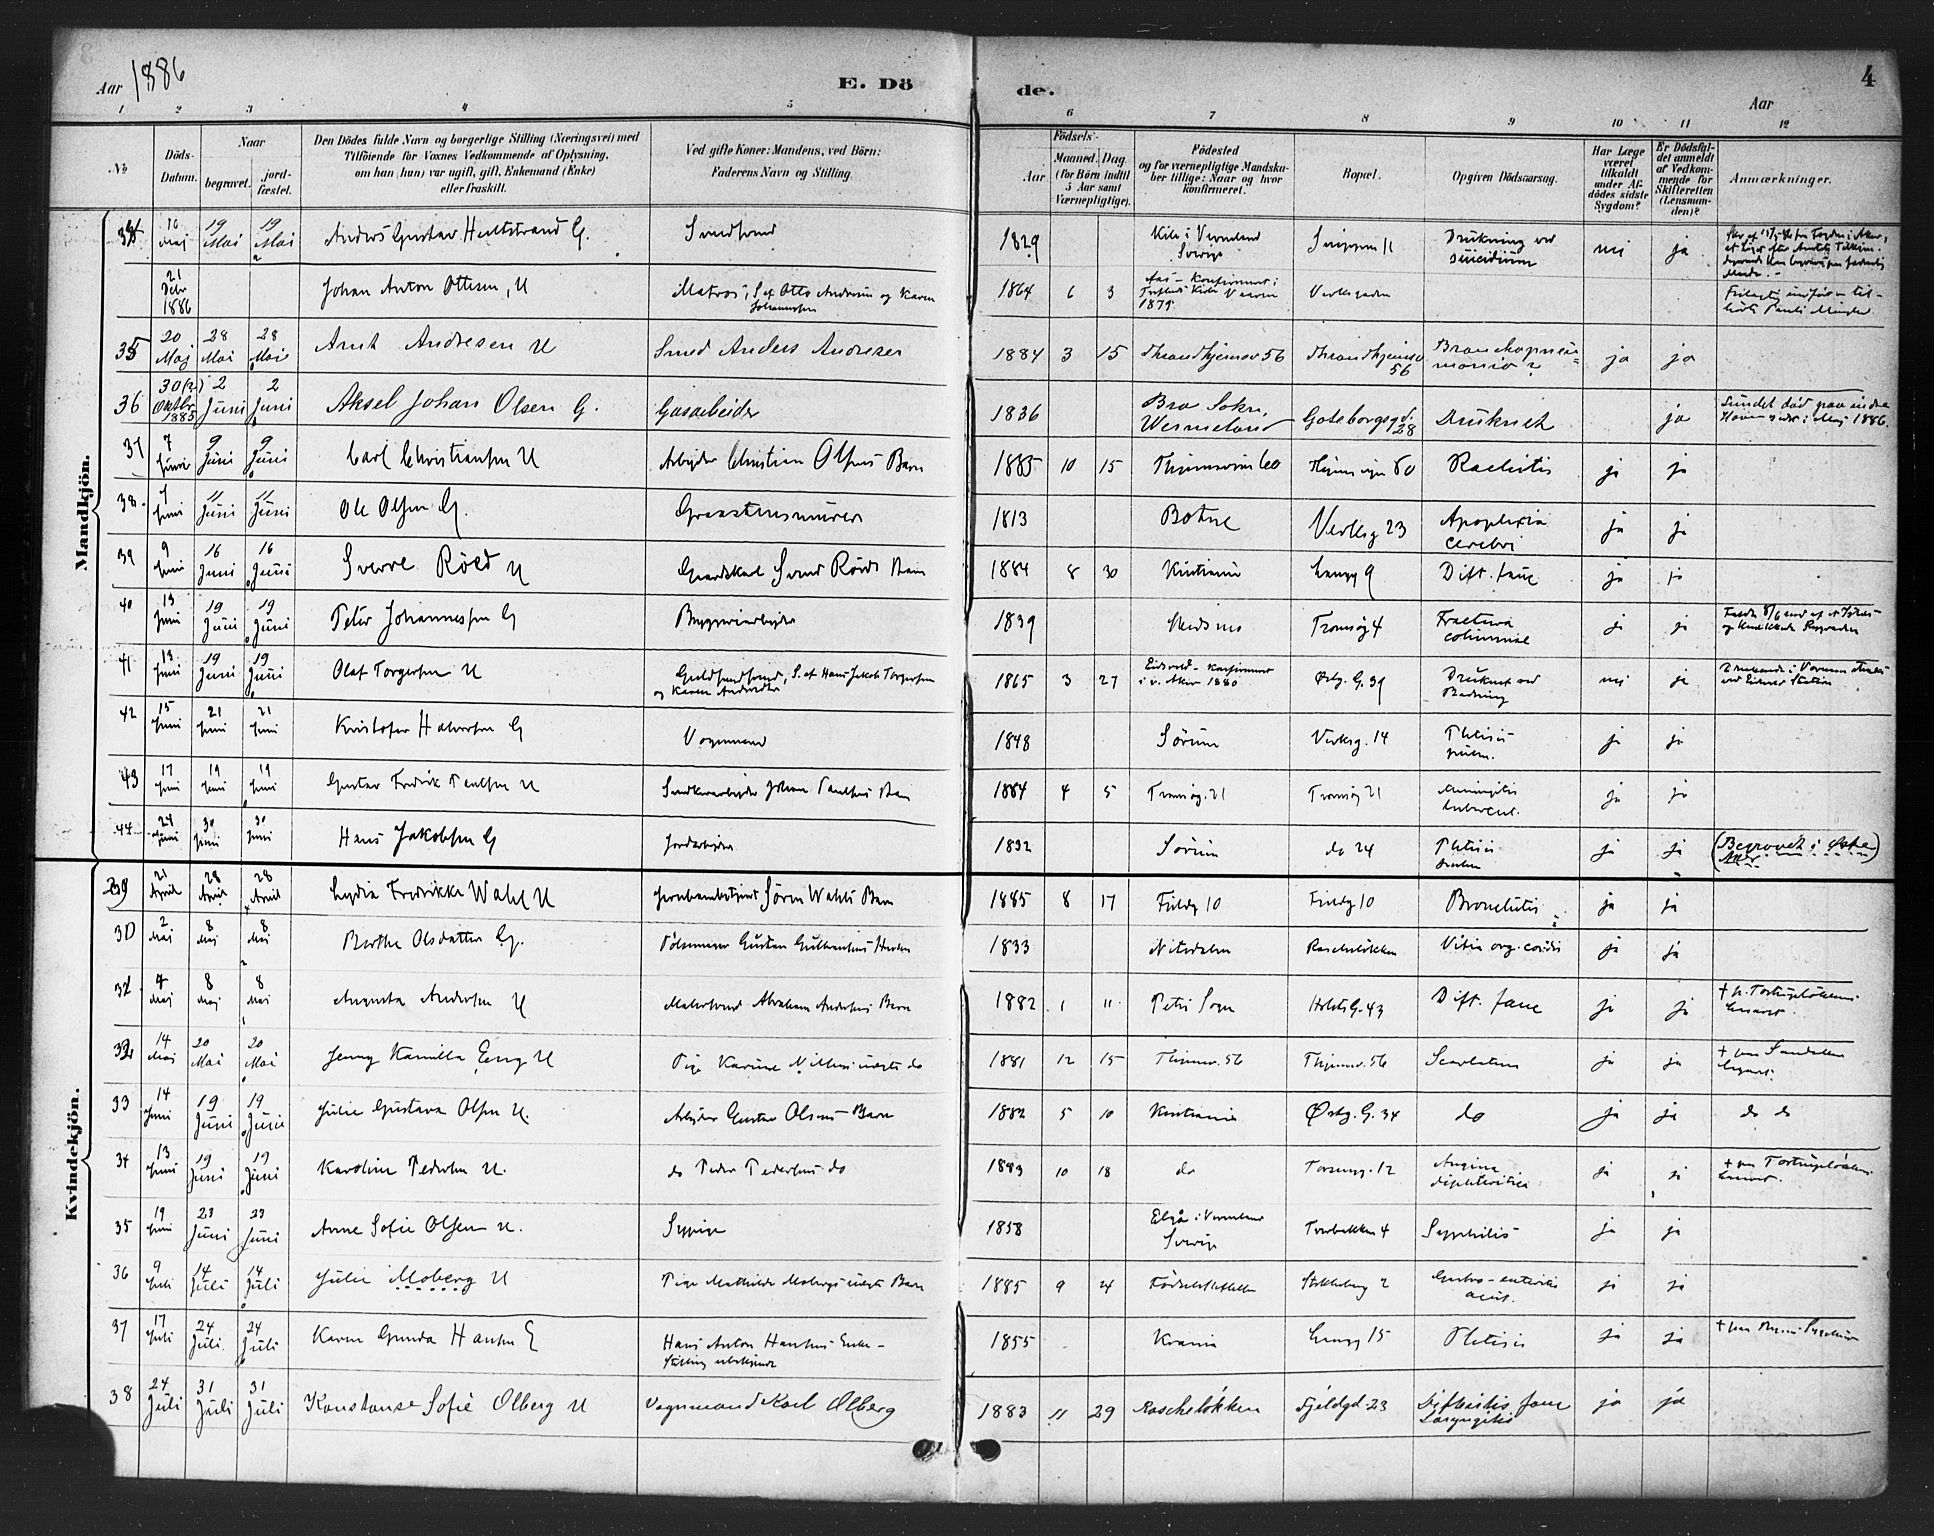 Aar 1886
E. Dö
de.
4
Aar
1 2 3 4 5 6 7 8 9 10 11 12
No
Döds-Datum.
Naar
begravet.
jord-fæstet.
Den Dödes fulde Navn og borgerlige Stilling (Næringsvei) med
Tilföiende for Voxnes Vedkommende af Oplysning,
om han (hun) var ugift, gift, Enkemand (Enke)
eller fraskilt.
Ved gifte Koner: Mandens, ved Börn:
Faderens Navn og Stilling.
Födsels-
Aar Maaned. Dag.
(for Börn indtil
5 Aar samt
Værnepligtige).
Födested
og for værnepligtige Mandska-
ber tillige: Naar og hvor
konfirmeret.
Bopæl.
Opgiven Dödsaarsag.
Har Læge
været
tilkaldt
under Af-
dödes sidste
Sygdom?
Er Dödsfal-
det anmeldt
af Vedkom-
mende for
Skifteretten
(Lensman-
den)?
Anmærkninger.
Mandkjön.
34 16 Maj 19 Mai 19 Mai Anders Gustav Hultstrand G. 1829 Vermland Sverige Drukning ved suicidium nei ja
21 Febr 1886 Johan Anton Ottesen, U Matros, S. af Otto Andersen og Karen Johannesen 1864 6 3 Aas - Konfirmert i 1879 Verksgaden
35 20 Maj 28 Mai 28 Mai Arnt Andresen U Smed Anders Andresen 1884 3 15 Throndhjemsv 56 Throndhjemsv 56 Bronchopneumonia ? ja ja
36 30(?) Oktbr 1885 2 Juni 2 Juni Aksel Johan Olsen G. Gasarbeider 1836 Bro Sokn, Wermeland Goteborggd. 28 Druknet ja Fundet død i Maj 1886.
37 7 Juni 9 Juni 9 Juni Carl Christiansen U Arbeider Christian Olsens Barn 1885 10 15 Thjemsvein 60 60 Rachitis ja ja
38 7 Juni 11 Juni 11 Juni Ole Olsen G. Graastensmurer 1813 Botne Verksg 23 Apoplexia cerebri ja ja
39 9 Juni 16 Juni 16 Juni Sverre Röed U Gaardskarl Röeds Barn 1884 8 30 Kristiania Langg 9 Dift. fauc ja ja
40 13 Juni 19 Juni 19 Juni Peter Johannessen G Bryggeriarbeider 1839 Skedsmo Tromsög 4 Fractura columnae ja ja
41 13 Juni 19 Juni 19 Juni Olaf Torgersen U S. af Hans Jakob Torgersen og Karen 1865 3 27 Eidsvold - konfirmert i v. Aker 1880 Østg. G. 39 Druknet ved Badning nei ja
42 15 Juni 21 Juni 21 Juni Kristofer Halvorsen G Vognmand 1848 Sørum Verksg. 14 Phtisis pulm. ja ja
43 17 Juni 19 Juni 19 Juni Gustav Fredrik Paulsen U Johan Paulsens Barn 1884 4 5 Tromsög. 21 Tromsög 21 Meningitis tubercul. ja ja
44 24 Juni 30 Juni 30 Juni Hans Jakobsen G Jordarbeider 1832 Sørum do 24 Phtisis ja ja (Begravet i Østre Aker)
Kvindekjön.
29 21 April 28 April 28 April Lydia Fredrikke Wahl U Sören Wahls Barn 1885 8 17 10 10 Bronchitis ja ja
30 2 Maj 8 Maj 8 Maj Berthe Olsdatter G. Pölsemager Gustav Hustru 1833 Nitedalen Rascheløkken Vitia org. cordis ja ja
31 4 Maj 8 Maj 8 Maj Augusta Andersen U Malersvend Abraham Andersens Barn 1882 1 11 Petri Sogn Holsts G. 43 Dift. fauc ja ja
32 14 Mai 20 Mai 20 Mai Jenny Kamilla Eng U Pige Karine Nilsens uægte do 1881 12 15 Thjemsv. 56 Thjemsv. 56 Scarlatina ja ja
33 14 Juni 19 Juni 19 Juni Julie Gustava Olsen U. Arbeider Gustav Olsens Barn 1882 5 10 Kristiania Østg. G. 34 do ja ja do do
34 13 Juni 19 Juni 19 Juni Karoline Pedersen U. do Peder Pedersens do 1883 10 18 do 12 Angina diphteritica ja ja
35 19 Juni 23 Juni 23 Juni Anne Sofie Olsen U. Sypige 1858 Vermland Sverige Torvbakken 4 Syphilis ja ja
36 9 Juli 14 Juli 14 Juli Julie Moberg U Pige Mathilde Mobergs uægte Barn 1885 9 24 Fødselsstiftelsen Stolteberg 2 Gastro-enteritis acut. ja ja
37 17 Juli 24 Juli 24 Juli Karen Gunda Hansen E Hans Anton Hansens Enke - Stilling ubekjendt 1855 Krania Langg 15 Phtisis ja ja
38 24 Juli 31 Juli 31 Juli Konstanse Sofie Olberg U Vognmand Karl Ølberg 1883 11 29 Rascheløkken Fjeldgd. 23 Difteritis fauc Laryngitis ja ja